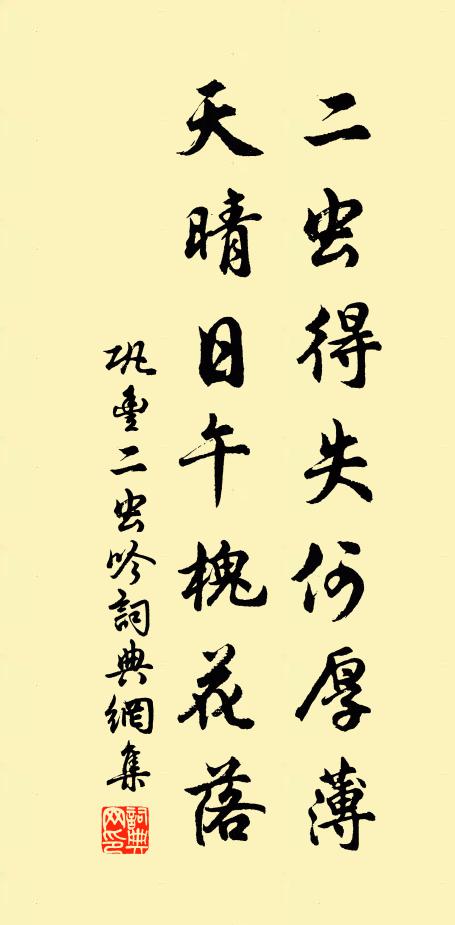 二虫得失何厚薄
天晴日午槐花落
巩豐二虫吟詞典網集
詞典网印